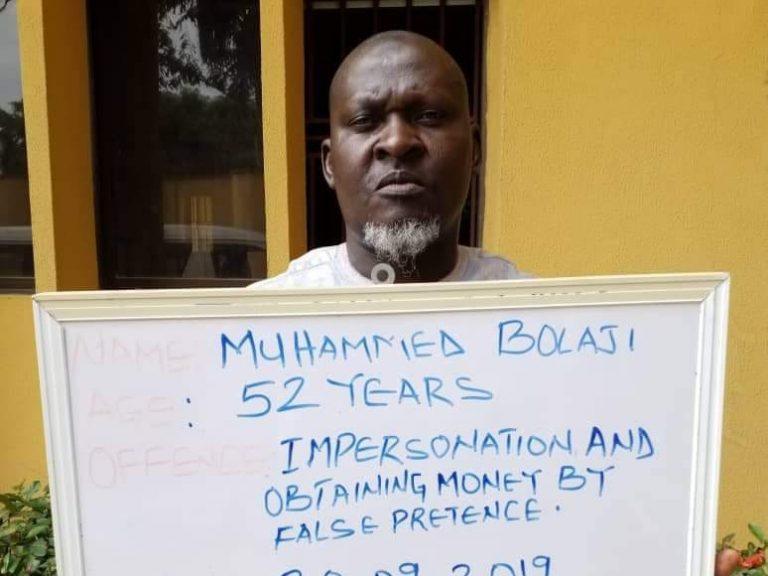 NAME: MUHAMMED BOLAJI
AGE: 52 YEARS
OFFENCE: IMPERSONATION AND
OBTAINING MONEY BY
FALSE PRETENCE.
09.2019